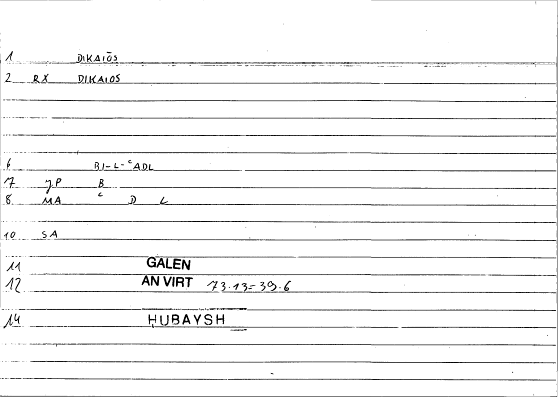 1 DIKAIŌS
2 RX DIKAIOS
6 BI-L-ʿADL
7 JP B
8 MA ʿ D L
10 SA
11 GALEN
12 AN VIRT 73.13=39.6
14 ḤUBAYSH